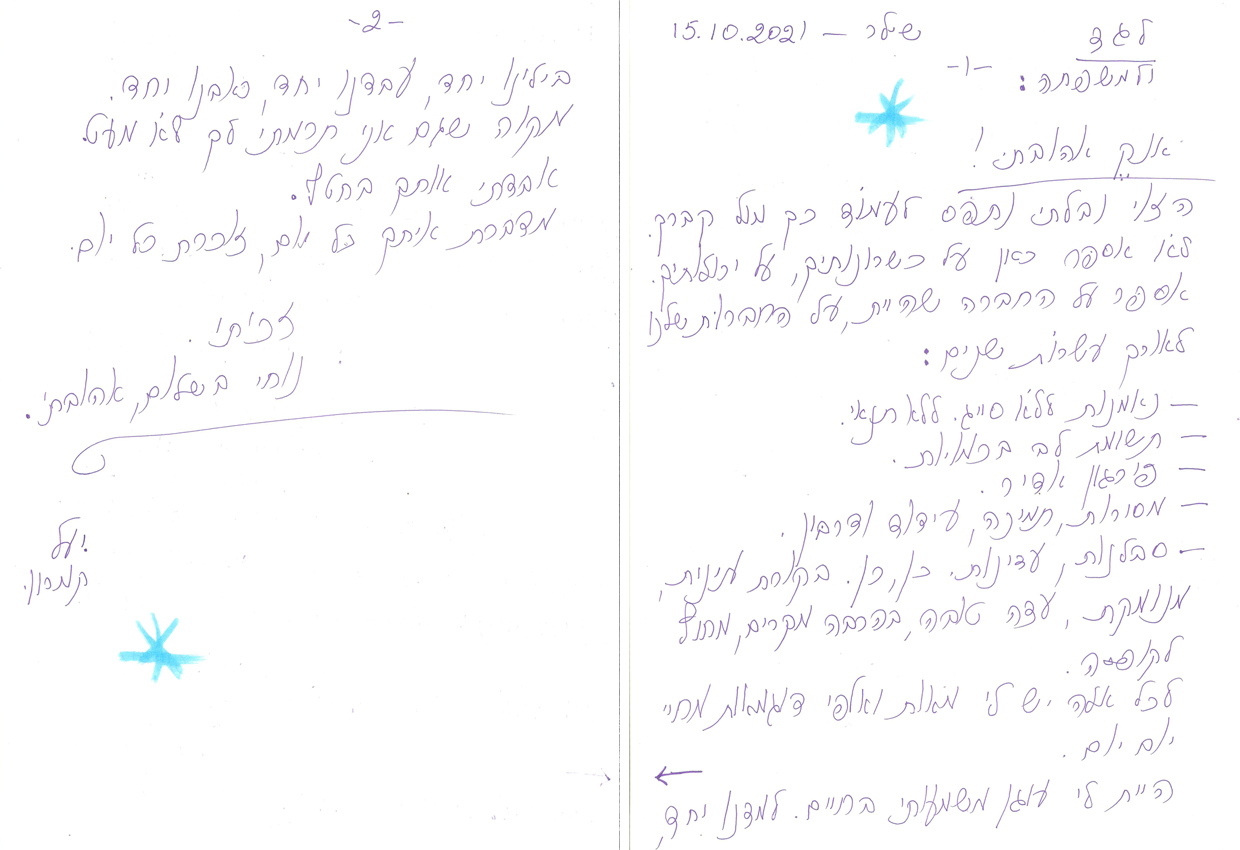 לגד
ולמשפחתה :
שילר – 15.10.2021
-1-
אהובתי !
הזוי ובלתי נתפס לעמוד כך מול קברך.
לא אספר כאן על כשרונותיך, על יכולותיך.
אספר על החברה שהיית, על החברות שלנו
לאורך עשרות שנים :
– נאמנות ללא סייג. ללא תנאי.
– תשומת לב בכמויות.
– פירגון אדיר.
– מסירות, תמיכה, עידוד ודרבון.
– סבלנות, עדינות. כן, כן. בקורת עניינית,
מנומקת, עצה טובה, בהרבה מקרים, מחוץ
לקופסה.
לכל אלה יש לי מאות ואלפי דוגמאות מחיי
יום יום.
היית לי עוגן משמעותי בחיים. למדנו יחד,
-2-
בילינו יחד, עבדנו יחד, כאבנו יחד.
מקוה שגם אני תרמתי לך לא מעט.
אבדתי אותך בחטף.
מדברת איתך כל יום, זוכרת כל יום.
זכיתי.
נוחי בשלום, אהובתי.
יעל
קמרון.